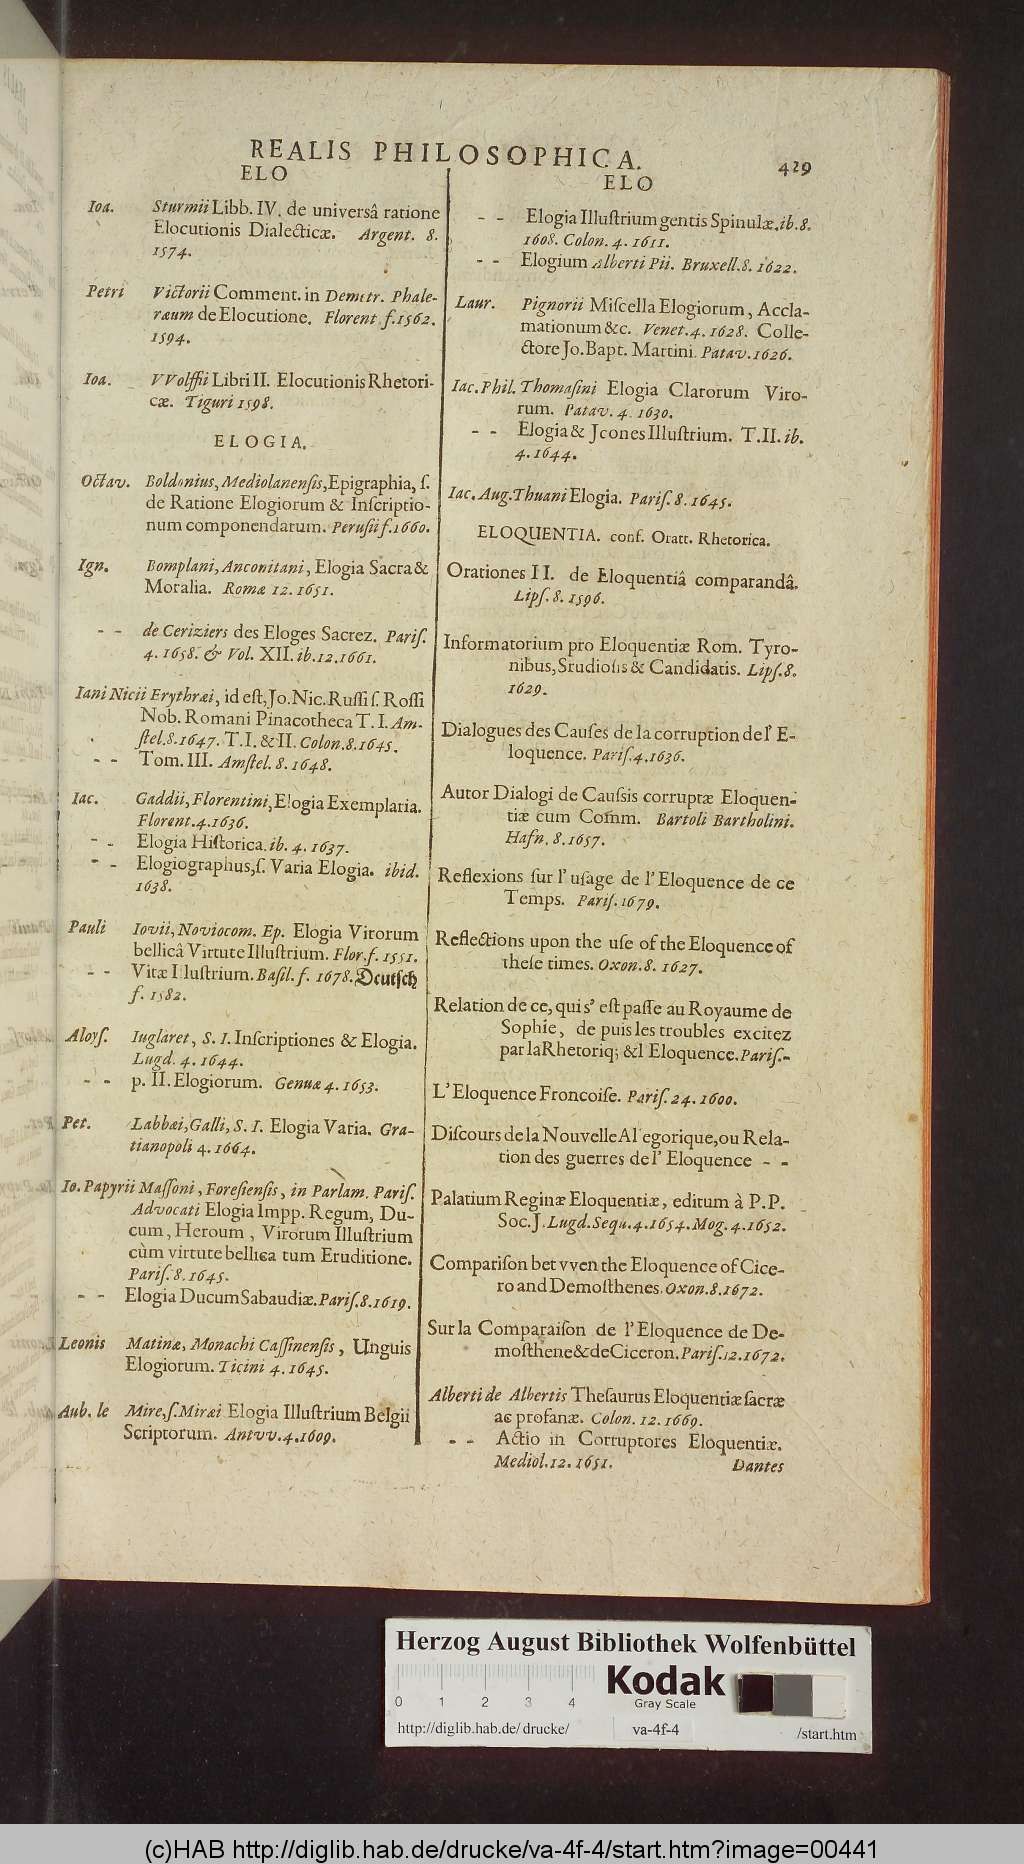 REALIS PHILOSOPHICA.
429
ELO
Ioa. Sturmii Libb. IV. de universâ ratione
Elocutionis Dialecticæ. Argent. 8.
1574.
Petri Victorii Comment. in Demetr. Phale-
ræum de Elocutione. Florent f. 1562.
1594.
Ioa. VVolffii Libri II. Elocutionis Rhetori-
cæ. Tiguri 1598.
ELOGIA.
Octav. Boldonius, Mediolanensis, Epigraphia, ſ.
de Ratione Elogiorum & Inſcriptio-
num componendarum. Perusii f. 1660.
Ign. Bomplani, Anconitani, Elogia Sacra &
Moralia. Romæ 12. 1651.
- - de Ceriziers des Eloges Sacrez. Pariſ.
4. 1658. & Vol. XII. ib. 12. 1661.
Iani Nicii Erythræi, id eſt, Jo. Nic. Ruſſi ſ. Roſſi
Nob. Romani Pinacotheca T. I. Am-
ſtel. 8. 1647. T. I. & II. Colon. 8. 1645.
- - Tom. III. Amſtel. 8. 1648.
Iac. Gaddii, Florentini, Elogia Exemplaria.
Florent. 4. 1636.
- - Elogia Hiſtorica. ib. 4. 1637.
- - Elogiographus, ſ. Varia Elogia. ibid.
1638.
Pauli Iovii, Noviocom. Ep. Elogia Virorum
bellicâ Virtute Illuſtrium. Flor. f. 1551.
- - Vitæ I luſtrium. Baſil. f. 1678. Deutſch
f. 1582.
Aloyſ. Iuglaret, S. I. Inſcriptiones & Elogia.
Lugd. 4. 1644.
- - p. II. Elogiorum. Genuæ 4. 1653.
Pet. Labbæi, Galli, S. I. Elogia Varia. Gra-
tianopoli 4. 1664.
Io. Papyrii Maſſoni, Foreſienſis, in Parlam. Pariſ.
Advocati Elogia Impp. Regum, Du-
cum, Heroum, Virorum Illuſtrium
cùm virtute bellica tum Eruditione.
Pariſ. 8. 1645.
- - Elogia Ducum Sabaudiæ. Pariſ. 8. 1619.
Leonis Matinæ, Monachi Caſſinenſis, Unguis
Elogiorum. Ticini 4. 1645.
Aub. le Mire, ſ. Miræi Elogia Illuſtrium Belgii
Scriptorum. Antvv. 4. 1609.
ELO
- - Elogia Illuſtrium gentis Spinulæ. ib. 8.
1608. Colon. 4. 1611.
- - Elogium Alberti Pii. Bruxell. 8. 1622.
Laur. Pignorii Miſcella Elogiorum, Accla-
mationum &c. Venet. 4. 1628. Colle-
ctore Jo. Bapt. Martini. Patav. 1626.
Iac. Phil. Thomaſini Elogia Clarorum Viro-
rum. Patav. 4. 1630.
- - Elogia & Jcones Illuſtrium. T. II. ib.
4. 1644.
Iac. Aug. Thuani Elogia. Pariſ. 8. 1645.
ELOQUENTIA. conf. Oratt. Rhetorica.
Orationes II. de Eloquentiâ comparandâ.
Lipſ. 8. 1596.
Informatorium pro Eloquentiæ Rom. Tyro-
nibus, Srudioſis & Candidatis. Lipſ. 8.
1629.
Dialogues des Cauſes de la corruption de l' E-
loquence. Pariſ. 4. 1636.
Autor Dialogi de Cauſsis corruptæ Eloquen-
tiæ cum Comm. Bartoli Bartholini.
Hafn. 8. 1657.
Reflexions ſur l' uſage de l' Eloquence de ce
Temps. Pariſ. 1679.
Reflections upon the uſe of the Eloquence of
theſe times. Oxon. 8. 1627.
Relation de ce, qui s' eſt paſſe au Royaume de
Sophie, de puis les troubles excitez
par la Rhetoriq; & l Eloquence. Pariſ. -
L' Eloquence Froncoiſe. Pariſ. 24. 1600.
Diſcours de la Nouvelle Al egorique, ou Rela-
tion des guerres de l' Eloquence - -
Palatium Reginæ Eloquentiæ, editum à P. P.
Soc. J. Lugd. Sequ. 4. 1654. Mog. 4. 1652.
Compariſon betvven the Eloquence of Cice-
ro and Demoſthenes. Oxon. 8. 1672.
Sur la Comparaiſon de l' Eloquence de De-
moſthene & de Ciceron. Pariſ. 12. 1672.
Alberti de Albertis Theſaurus Eloquentiæ ſacræ
ac profanæ. Colon. 12. 1669.
- - Actio in Corruptores Eloquentiæ.
Mediol. 12. 1651.
Dantes
Herzog August Bibliothek Wolfenbüttel
0 1 2 3 4
Kodak
Gray Scale
http://diglib.hab.de/ drucke/ va-4f-4 /start.htm
(c)HAB http://diglib.hab.de/drucke/va-4f-4/start.htm?image=00441